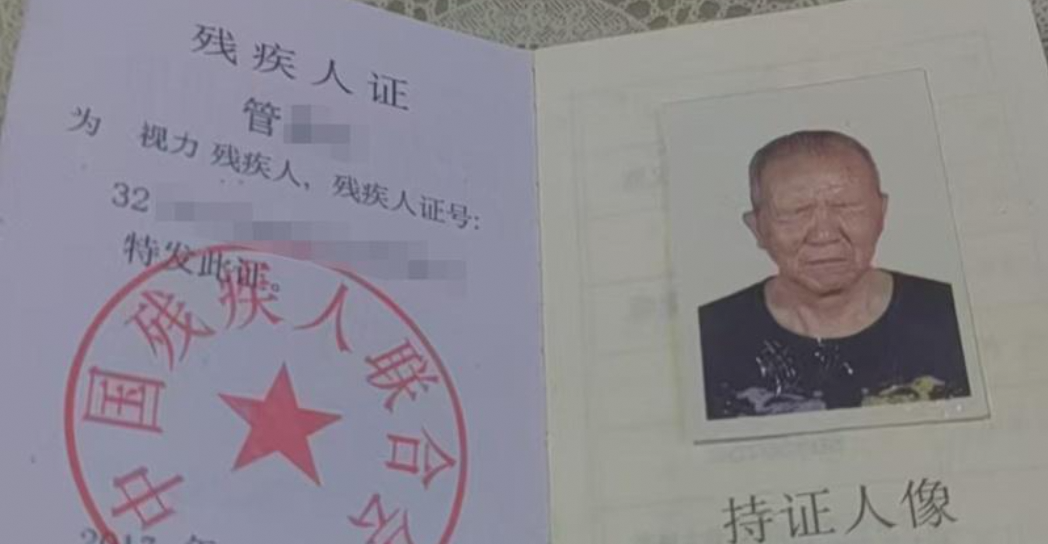 残疾人证
管
为 视力 残疾人，残疾人证号:
32
特发此证。
中国残疾人联合会
年
持证人像